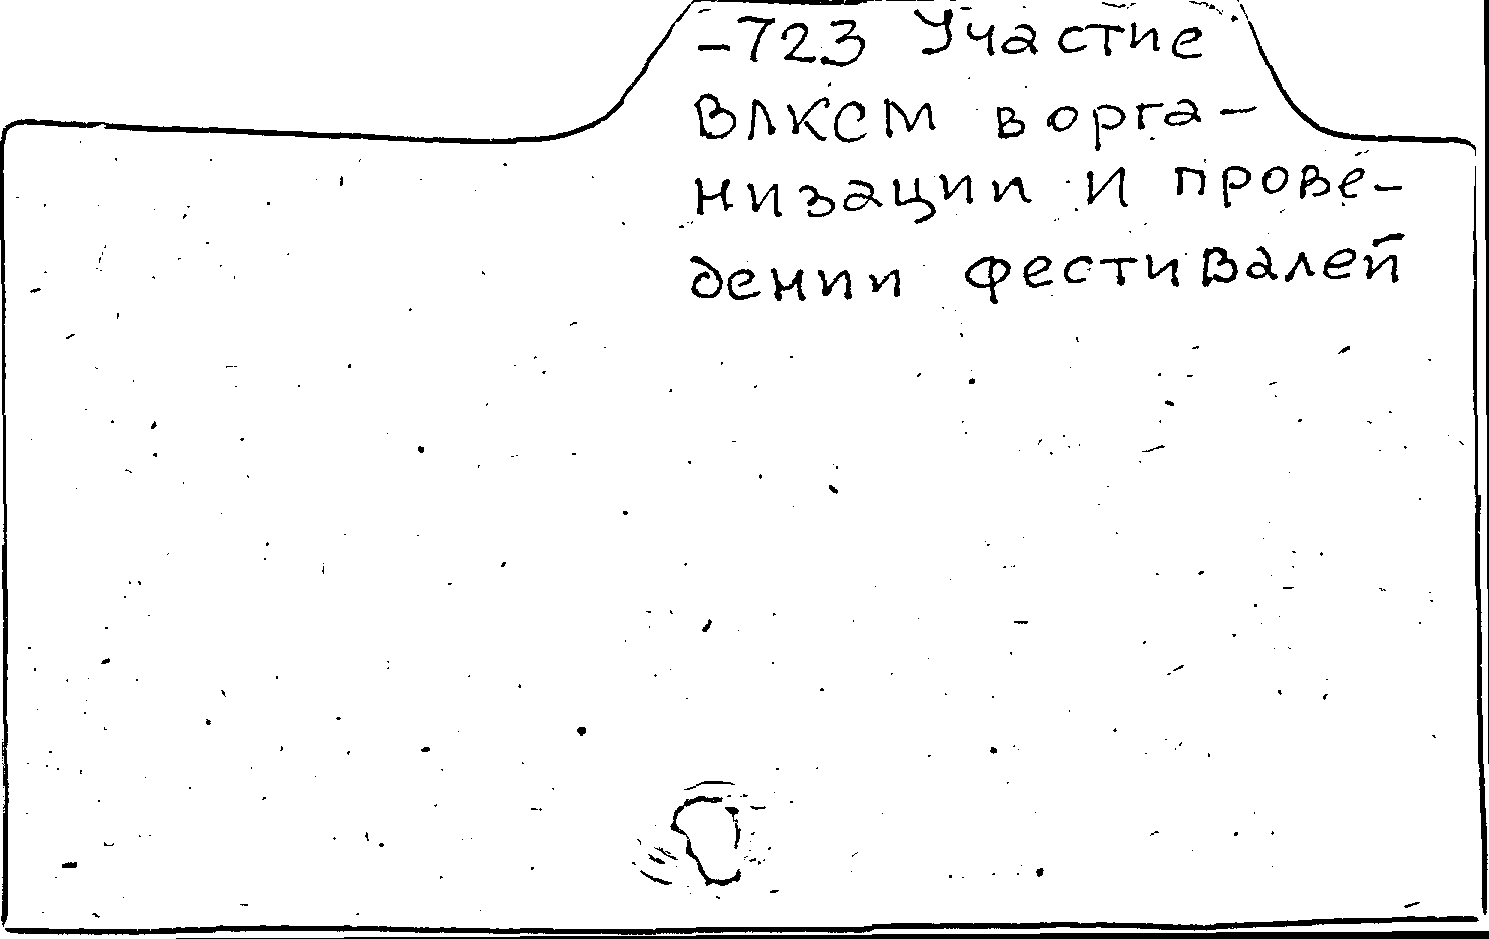 -723 Участие
ВЛКСМ в орга-
низации и прове-
дении фестивалей